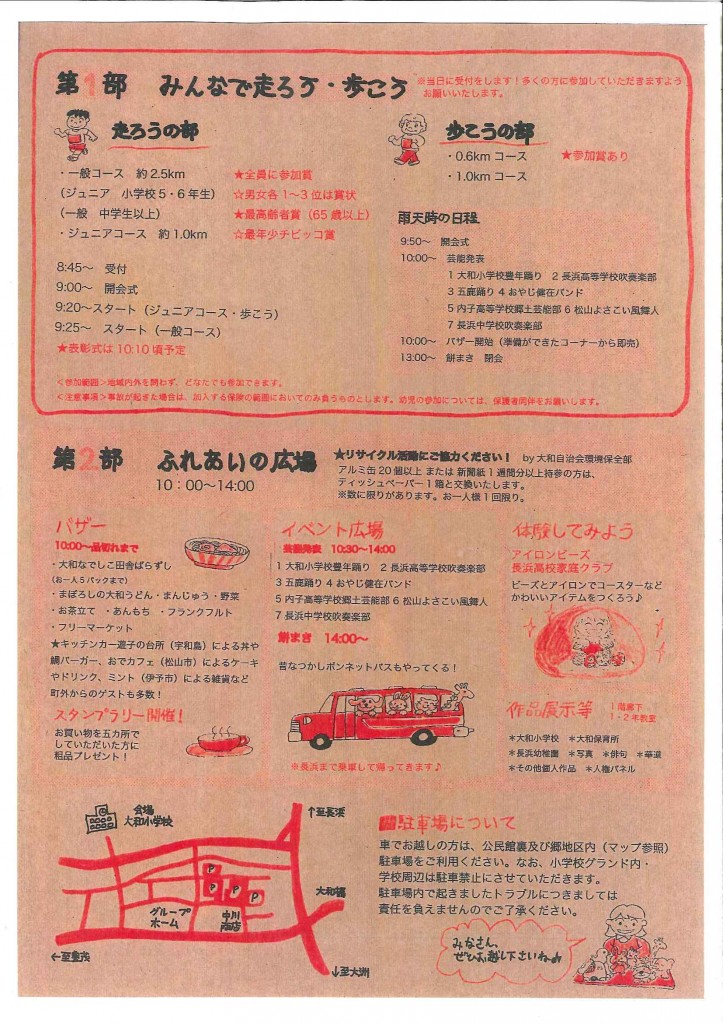 第1部 みんなで走ろう・歩こう
※当日に受付をします！多くの方に参加していただきますよう
お願いいたします。
走ろうの部
・一般コース 約2.5km
（ジュニア 小学校5・6年生）
（一般 中学生以上）
・ジュニアコース 約1.0km
★全員に参加賞
☆男女各1～3位は賞状
★最高齢者賞（65歳以上）
☆最年少チビッコ賞
8:45～ 受付
9:00～ 開会式
9:20～スタート（ジュニアコース・歩こう）
9:25～ スタート（一般コース）
★表彰式は10:10頃予定
歩こうの部
・0.6kmコース
・1.0kmコース
★参加賞あり
雨天時の日程
9:50～ 開会式
10:00～ 芸能発表
1 大和小学校豊年踊り 2 長浜高等学校吹奏楽部
3 五鹿踊り 4 おやじ健在バンド
5 内子高等学校郷土芸能部 6 松山よさこい風舞人
7 長浜中学校吹奏楽部
10:00～ バザー開始（準備ができたコーナーから即売）
13:00～ 餅まき 閉会
＜参加範囲＞地域内外を問わず、どなたでも参加できます。
＜注意事項＞事故が起きた場合は、加入する保険の範囲においてのみ負うものとします。幼児の参加については、保護者同伴をお願いします。
第2部 ふれあいの広場
10：00～14:00
★リサイクル活動にご協力ください！ by 大和自治会環境保全部
アルミ缶20個以上 または 新聞紙1週間分以上持参の方は、
ティッシュペーパー1箱と交換いたします。
※数に限りがあります。お一人様1回限り。
バザー
10:00～品切れまで
・大和なでしこ田舎ばらずし
（お一人5パックまで）
・まぼろしの大和うどん・まんじゅう・野菜
・お茶立て ・あんもち ・フランクフルト
・フリーマーケット
★キッチンカー遊子の台所（宇和島）による丼や
鯛バーガー、おでカフェ（松山市）によるケーキ
やドリンク、ミント（伊予市）による雑貨など
町外からのゲストも多数！
スタンプラリー開催！
お買い物を五カ所で
していただいた方に
粗品プレゼント！
イベント広場
芸能発表 10:30～14:00
1 大和小学校豊年踊り 2 長浜高等学校吹奏楽部
3 五鹿踊り 4 おやじ健在バンド
5 内子高等学校郷土芸能部 6 松山よさこい風舞人
7 長浜中学校吹奏楽部
餅まき 14:00～
昔なつかしボンネットバスもやってくる！
※長浜まで乗車して帰ってきます♪
体験してみよう
アイロンビーズ
長浜高校家庭クラブ
ビーズとアイロンでコースターなど
かわいいアイテムをつくろう♪
作品展示等
1階廊下
1・2年教室
＊大和小学校 ＊大和保育所
＊長浜幼稚園 ＊写真 ＊俳句 ＊華道
＊その他個人作品 ＊人権パネル
会場
大和小学校
↑至長浜
大和橋
P
P
P
P
グループ
ホーム
中川
商店
←至豊茂
↓至大洲
駐車場について
車でお越しの方は、公民館裏及び郷地区内（マップ参照）
駐車場をご利用ください。なお、小学校グランド内・
学校周辺は駐車禁止にさせていただきます。
駐車場内で起きましたトラブルにつきましては
責任を負えませんのでご了承ください。
みなさん、
ぜひお越し下さいね♪